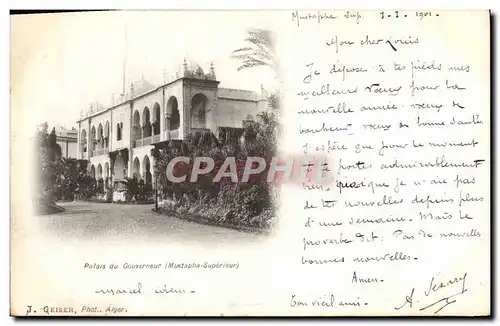 Mustapha Sup. 1.1.1901.
Mon cher Louis
Je dépose à tes pieds mes
meilleurs vœux pour la
nouvelle année. vœux de
bonheur vœux de bonne santé
que pour le moment
tu te portes admirablement
bien, quoique je n'aie pas
de tes nouvelles depuis plus
d'une semaine. Mais le
proverbe dit: Pas de nouvelles
bonnes nouvelles.
Amen.
Ton vieil ami
CPARAMA
Palais du Gouverneur (Mustapha-Supérieur)
Marcel idem.
J. GEISER, Phot., Alger.